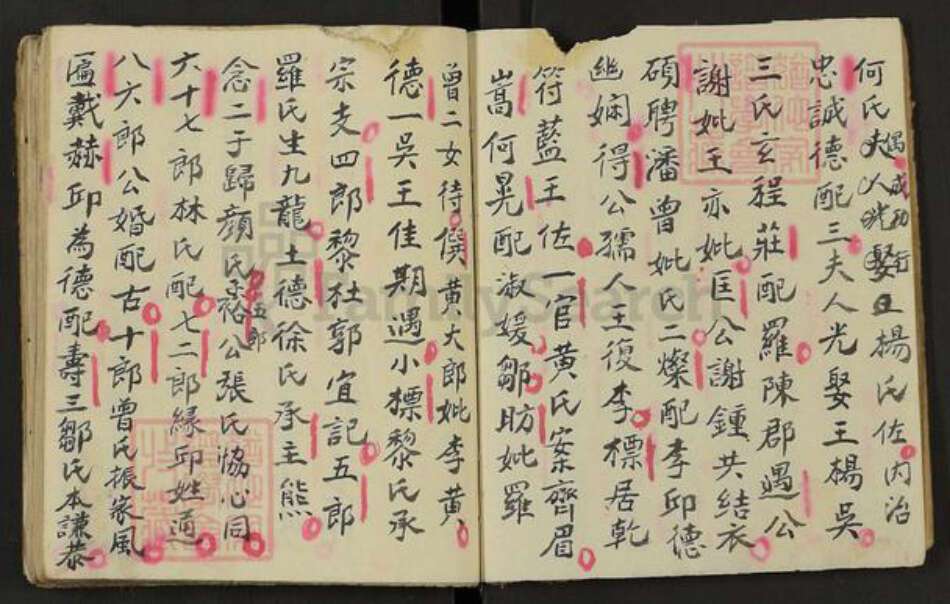 何氏夫人光娶旦楊氏佐內治
偶成功行
忠誠德配三夫人光娶王楊吳
三氏玄程莊配羅陳郡遇公
謝妣王亦妣匡公謝鍾共結衣
碩聘潘曾妣氏二燦配李邱德
繼嫻得公孺人王復李標居乾
符藍王佐一官黃氏案齊眉
嵩何晃配淑媛鄒助妣羅
曾二女待僎黃大郎妣李黃
德一吳王佳期遇小標黎氏承
宗支四郎黎杜郭宜記五郎
羅氏生九龍土德徐氏承主熊
念二于歸顏氏五郎裕公張氏協心同
六十七郎林氏配七二郎緣邱姓適
八六郎公婚配古十郎曾氏振家風
匾戴赫邱為德配壽三鄒氏本謙恭
FamilySearch